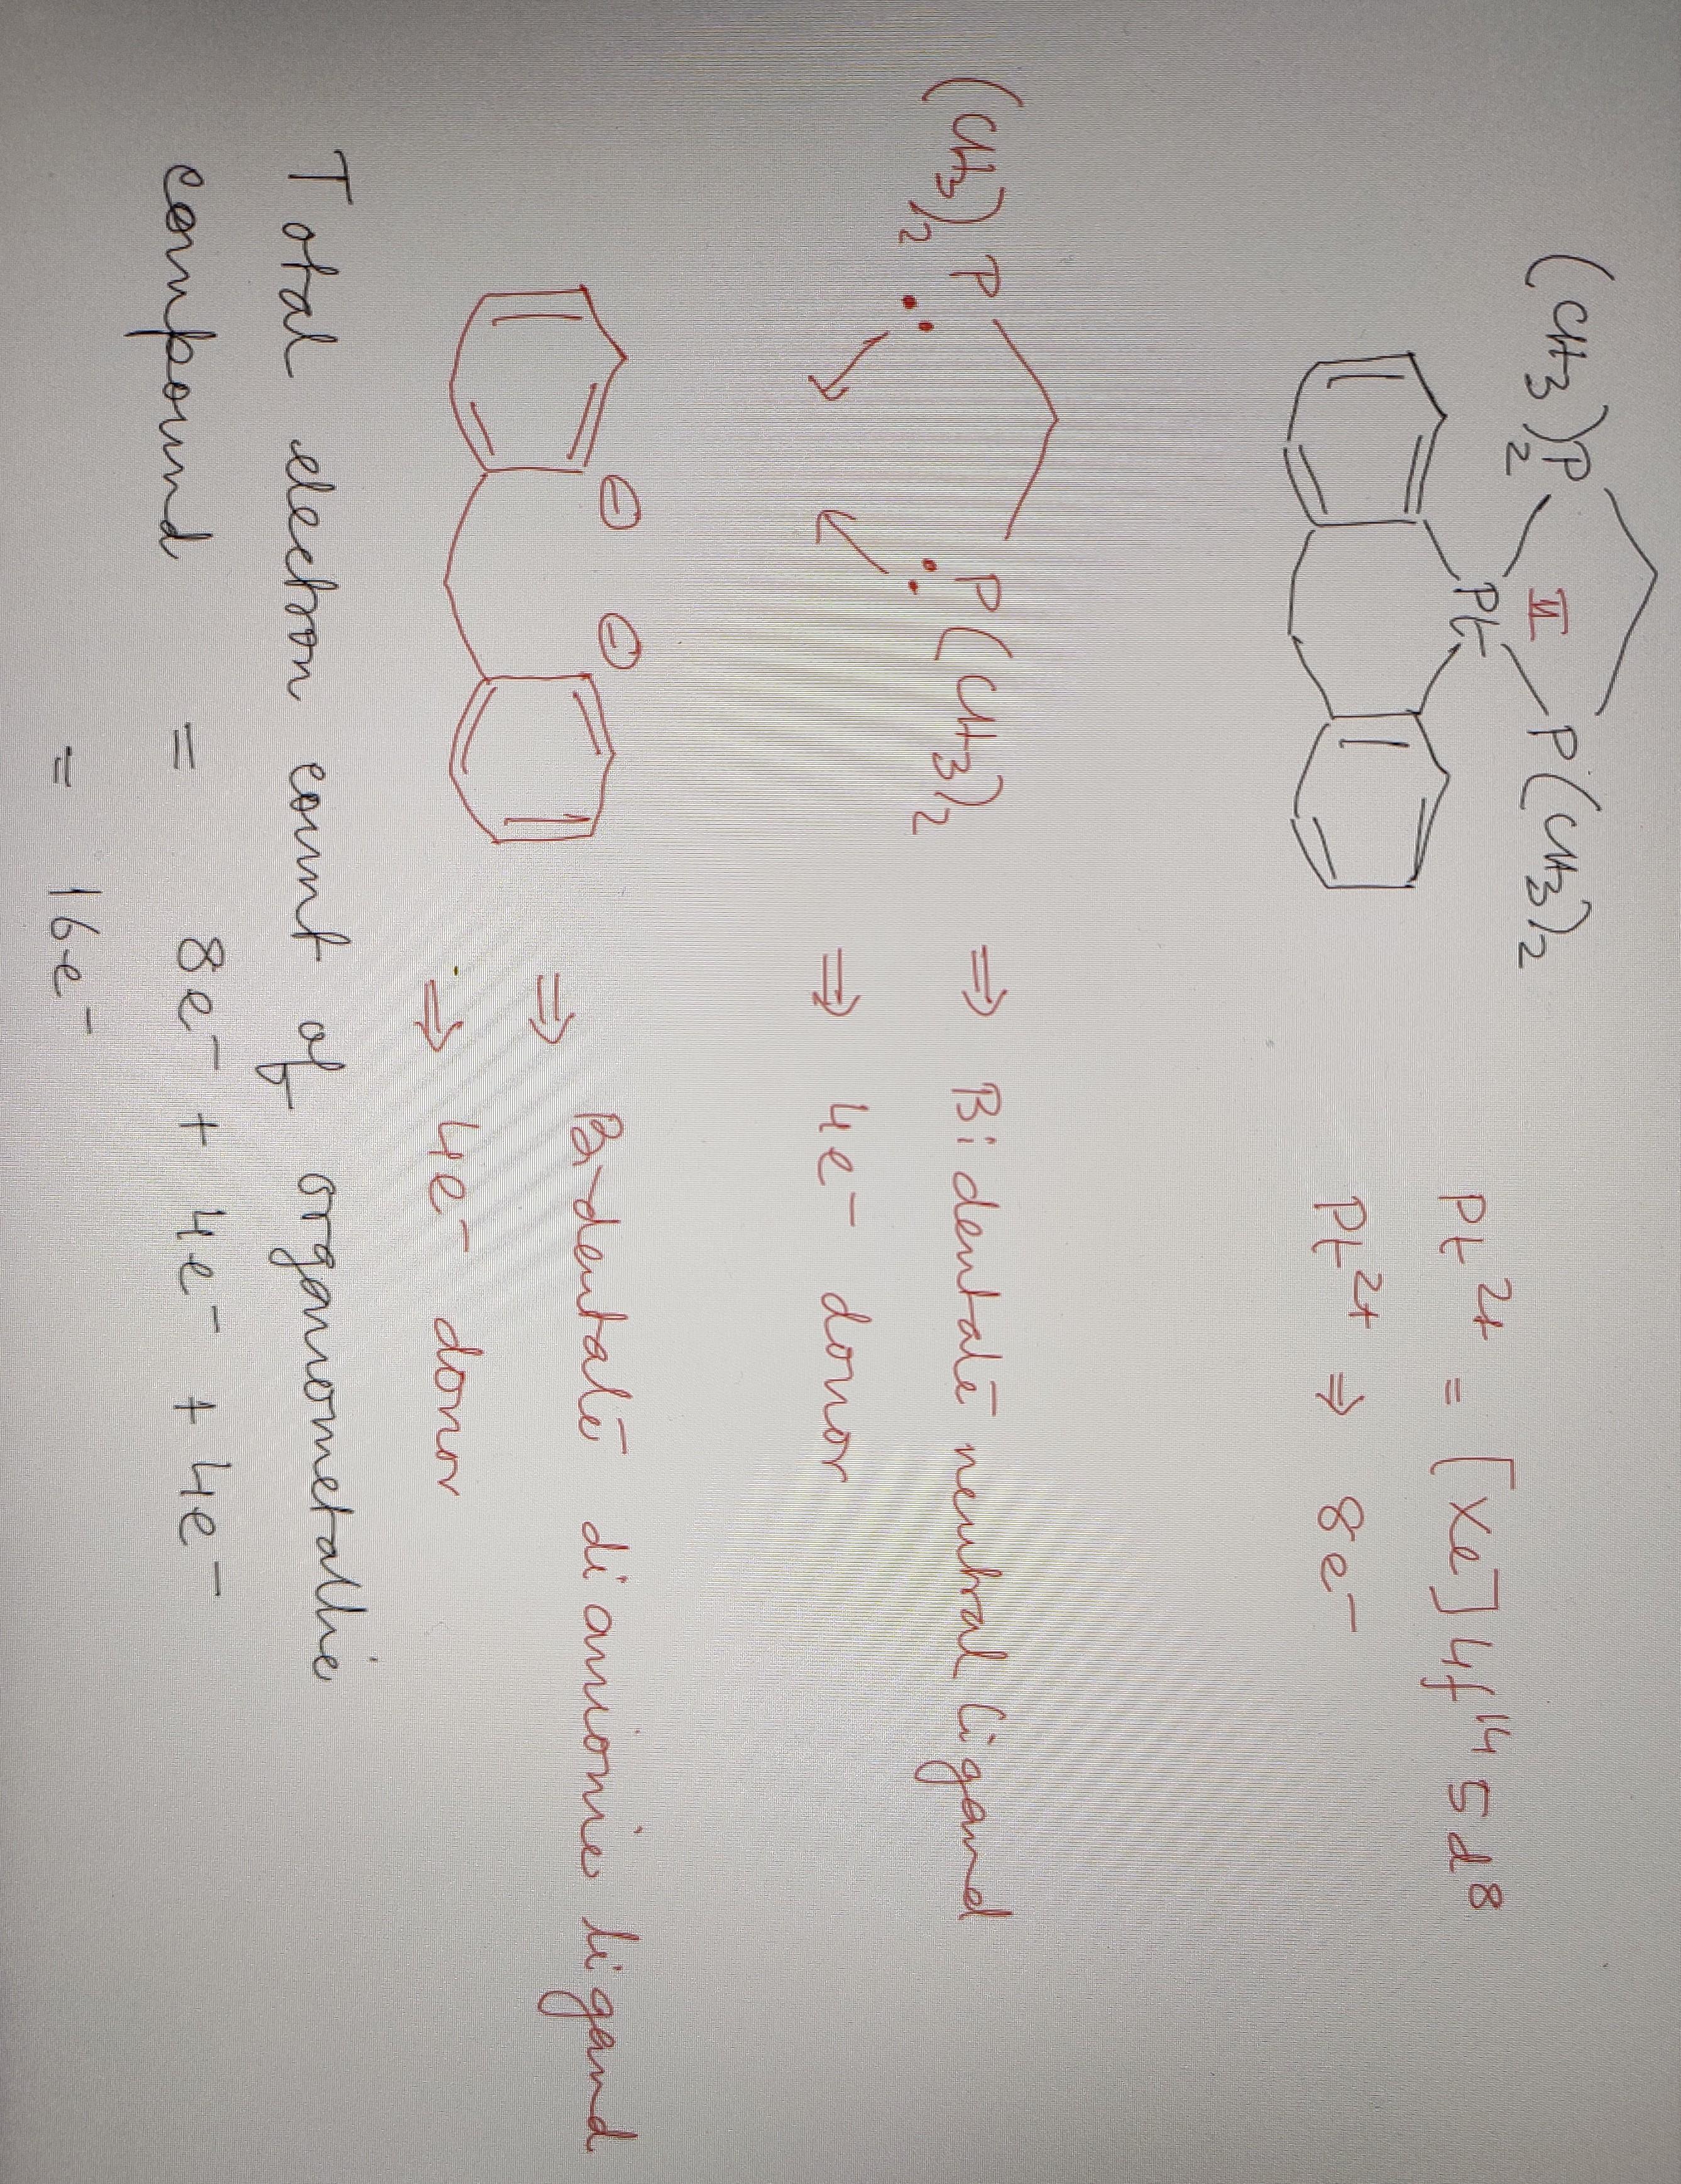 (CH3)2P P(CH3)2
II
Pt
Pt2+ = [Xe]4f14 5d8
Pt2+ ⇒ 8e-
(CH3)2P: :P(CH3)2 ⇒ Bidentate neutral ligand
⇒ 4e- donor
⊖ ⊖
⇒ Bi-dentate dianionic ligand
⇒ 4e- donor
Total electron count of organometallic
compound = 8e- + 4e- + 4e-
= 16e-